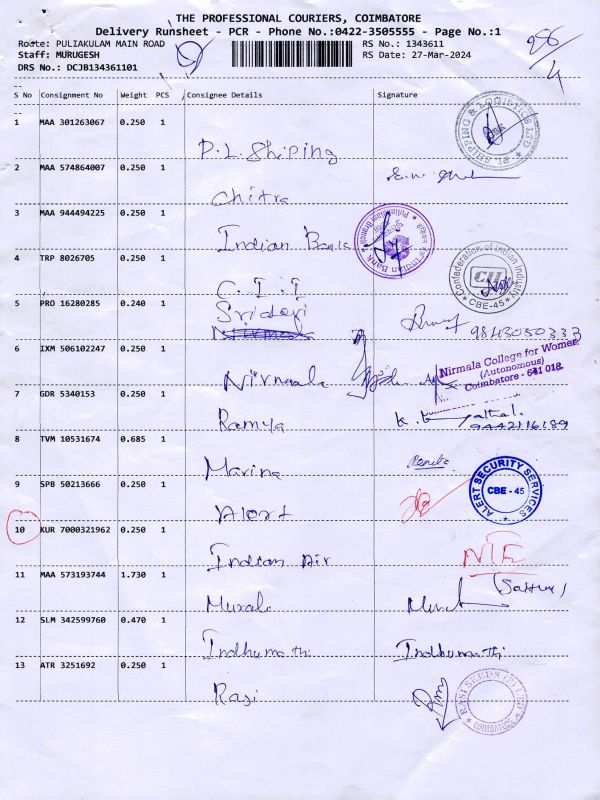 THE PROFESSIONAL COURIERS, COIMBATORE
Delivery Runsheet - PCR - Phone No.:0422-3505555 - Page No.:1
Route: PULIAKULAM MAIN ROAD RS No.: 1343611
Staff: MURUGESH RS Date: 27-Mar-2024
DRS No.: DCJB134361101
28/4
S No Consignment No Weight PCS Consignee Details Signature
1 MAA 301263067 0.250 1
P.L. Shiping
PL SHIPPING & LOGISTICS LTD
2 MAA 574864007 0.250 1
Chitra
3 MAA 944494225 0.250 1
Indian Bank
Indian Bank
4 TRP 8026705 0.250 1
C.I.I
Confederation of Indian Industry
CII
CBE-45
5 PRO 16280285 0.240 1
Sridevi
9843050333
6 IXM 506102247 0.250 1
Nirmala
Nirmala College for Women
(Autonomous)
Coimbatore - 641 018.
7 GDR 5340153 0.250 1
Ramya
9442116189
8 TVM 10531674 0.685 1
Marina
Renuka
9 SPB 50213666 0.250 1
Alert
ALERT SECURITY SERVICES
CBE - 45
10 KUR 7000321962 0.250 1
Indian Air
11 MAA 573193744 1.730 1
Murali
12 SLM 342599760 0.470 1
Indhumathi Indhumathi
13 ATR 3251692 0.250 1
Rasi
RASI SEEDS (P) LTD
COIMBATORE